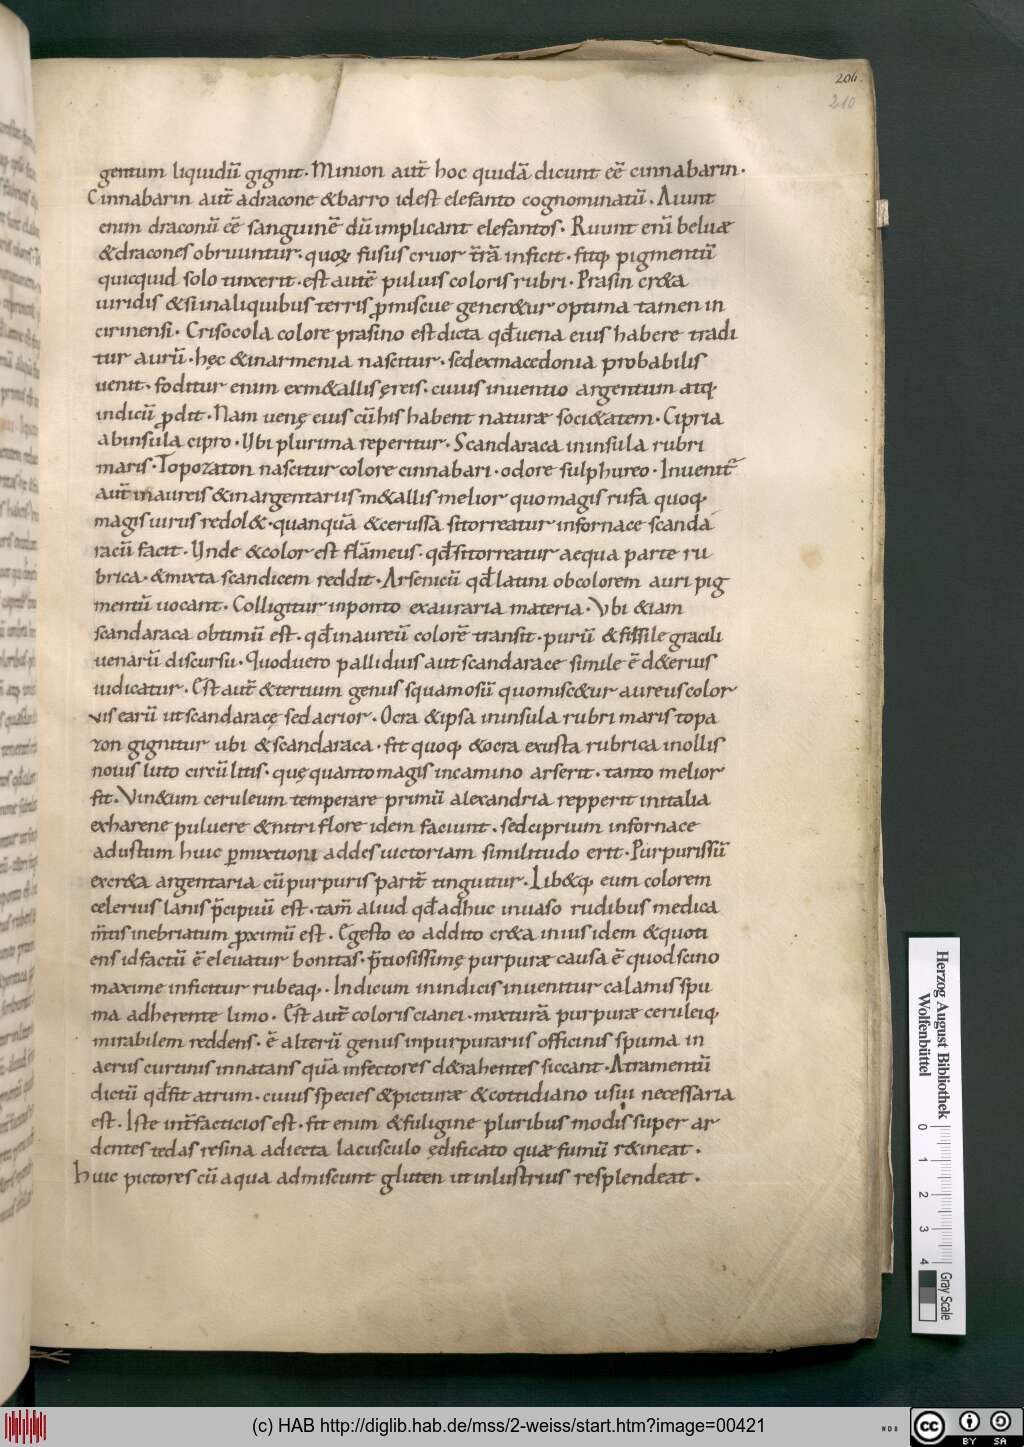 206.
210
gentum liquidū gignit. Minion aut̄ hoc quidā dicunt eē cinnabarin.
Cinnabarin aut̄ a dracone & barro id est elefanto cognominatū. Aiunt
enim draconū eē sanguinē dū implicant elefantos. Ruunt eni beluæ
& dracones obruuntur. quoꝝ fusus cruor t̄rā inficit. fitq; pigmentū
quicquid solo tinxerit. est autē puluis coloris rubri. Prasin cr&a
uiridis & si in aliquibus terris p̄miscue gener&ur optima tamen in
cirinensi. Crisocola colore prasino est dicta qđ uena eius habere tradi
tur aurū. hęc & in armenia nascitur. sed ex macedonia probabilis
uenit. foditur enim ex m&allis ęreis. cuius inuentio argentum atq;
indicū ꝓdit. Nam uenę eius cū his habent naturæ soci&atem. Cipria
ab insula cipro. Ubi plurima reperitur. Scandaraca in insula rubri
maris. Topozaton nascitur colore cinnabari. odore sulphureo. Inuenit̄
aut̄ in aureis & in argentariis m&allis melior quo magis rufa quoq;
magis uirus redol&. quanquā & cerussa si torreatur in fornace scanda
racū facit. Unde & color est flāmeus. qđ si torreatur aequa parte ru
brica. & mixta scandicem reddit. Arsenicū qđ latini ob colorem auri pig
mentū uocant. Colligitur in ponto ex auraria materia. Ubi &iam
scandaraca obtimū est. qđ in aureū colorē transit. purū & fissile gracili
uenarū discursu. Quod uero pallidius aut scandarace simile ē d&erius
iudicatur. Est aut̄ & tertium genus squamosū quo misc&ur aureus color
uis earū ut scandaracę sed acrior. Ocra & ipsa in insula rubri maris topa
zon gignitur ubi & scandaraca. fit quoq; & ocra exusta rubrica in ollis
nouis luto circū litis. quę quanto magis in camino arserit. tanto melior
fit. Vin&um ceruleum temperare primū alexandria repperit in italia
ex harene puluere & nitri flore idem faciunt. sed ciprium in fornace
adustum huic ꝑmixtioni addes uictoriam similitudo erit. Purpurissū
ex cr&a argentaria cū purpuris parit̄ tinguitur. Lib&q; eum colorem
celerius lanis p̄cipuū est. tam̄ aliud qđ adhuc in uaso rudibus medica
m̄tis inebriatum ꝓximū est. Egesto eo addito cr&a in ius idem & quoti
ens id factū ē eleuatur bonitas. p̄tiosissimę purpuræ causa ē quod scino
maxime inficitur rubeaq;. Indicum in indicis inuenitur calamis spu
ma adherente limo. Est aut̄ coloris cianei. mixturā purpuræ ceruleiq;
mirabilem reddens. ē alterū genus in purpurariis officinis spuma in
aereis curtinis innatans quā infectores d&rahentes siccant. Atramentū
dictū qđ fit atrum. cuius species & picturæ & cottidiano usui necessaria
est. Iste int̄ facticios est. fit enim & fuligine pluribus modis super ar
dentes tedas resina adiecta lacusculo ędificato quæ fumū r&ineat.
Huic pictores cū aqua admiscunt gluten ut inlustrius resplendeat.
Herzog August Bibliothek
Wolfenbüttel
0 1 2 3 4
Gray Scale
(c) HAB http://diglib.hab.de/mss/2-weiss/start.htm?image=00421
WDB
cc BY SA